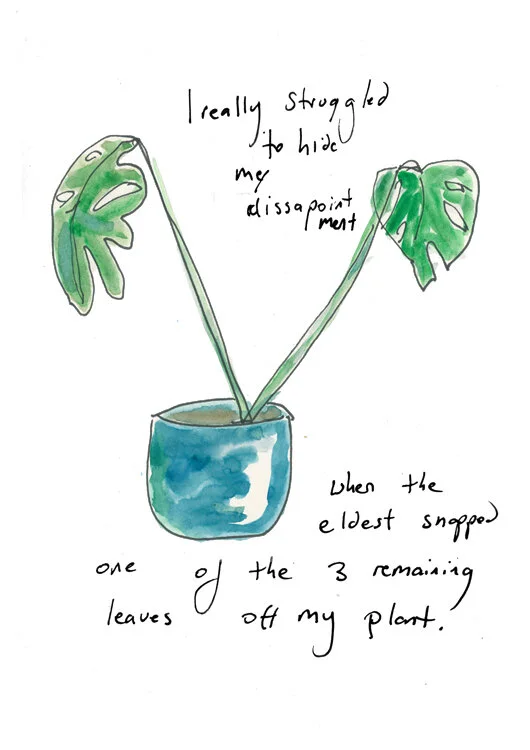 I really struggled
to hide
my
dissapoint
ment
when the
eldest snapped
one of the 3 remaining
leaves off my plant.